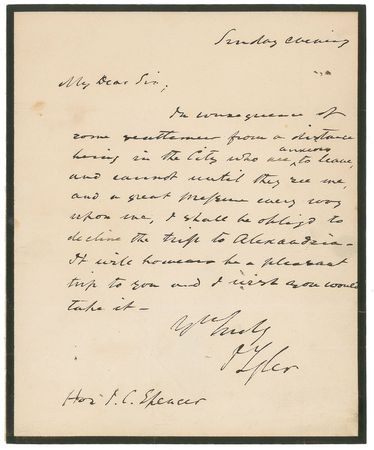 Sunday evening
My Dear Sir,
In consequence of
some gentlemen from a distance
being in the City who are anxious to leave,
and cannot until they see me,
and a great pressure every way
upon me, I shall be obligd to
decline the trip to Alexandria –
It will however be a pleasant
trip to you and I wish you would
take it –
J Tyler
Hon J. C. Spencer